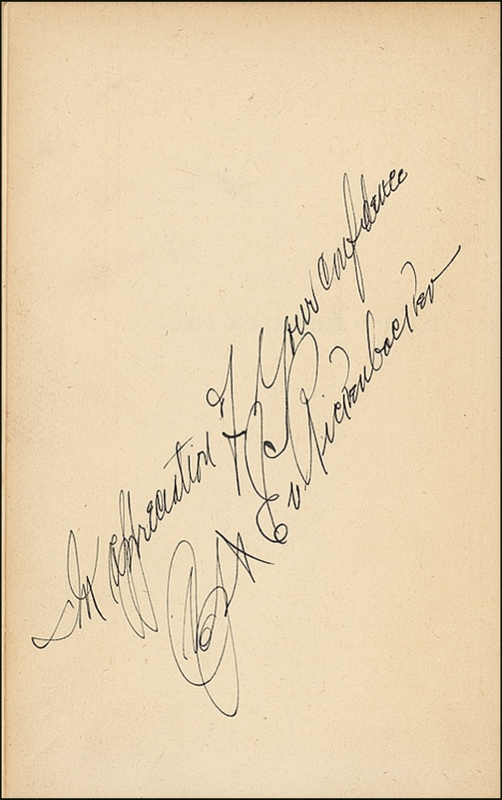 In appreciation of Your Confidence
Capt E V Rickenbacker